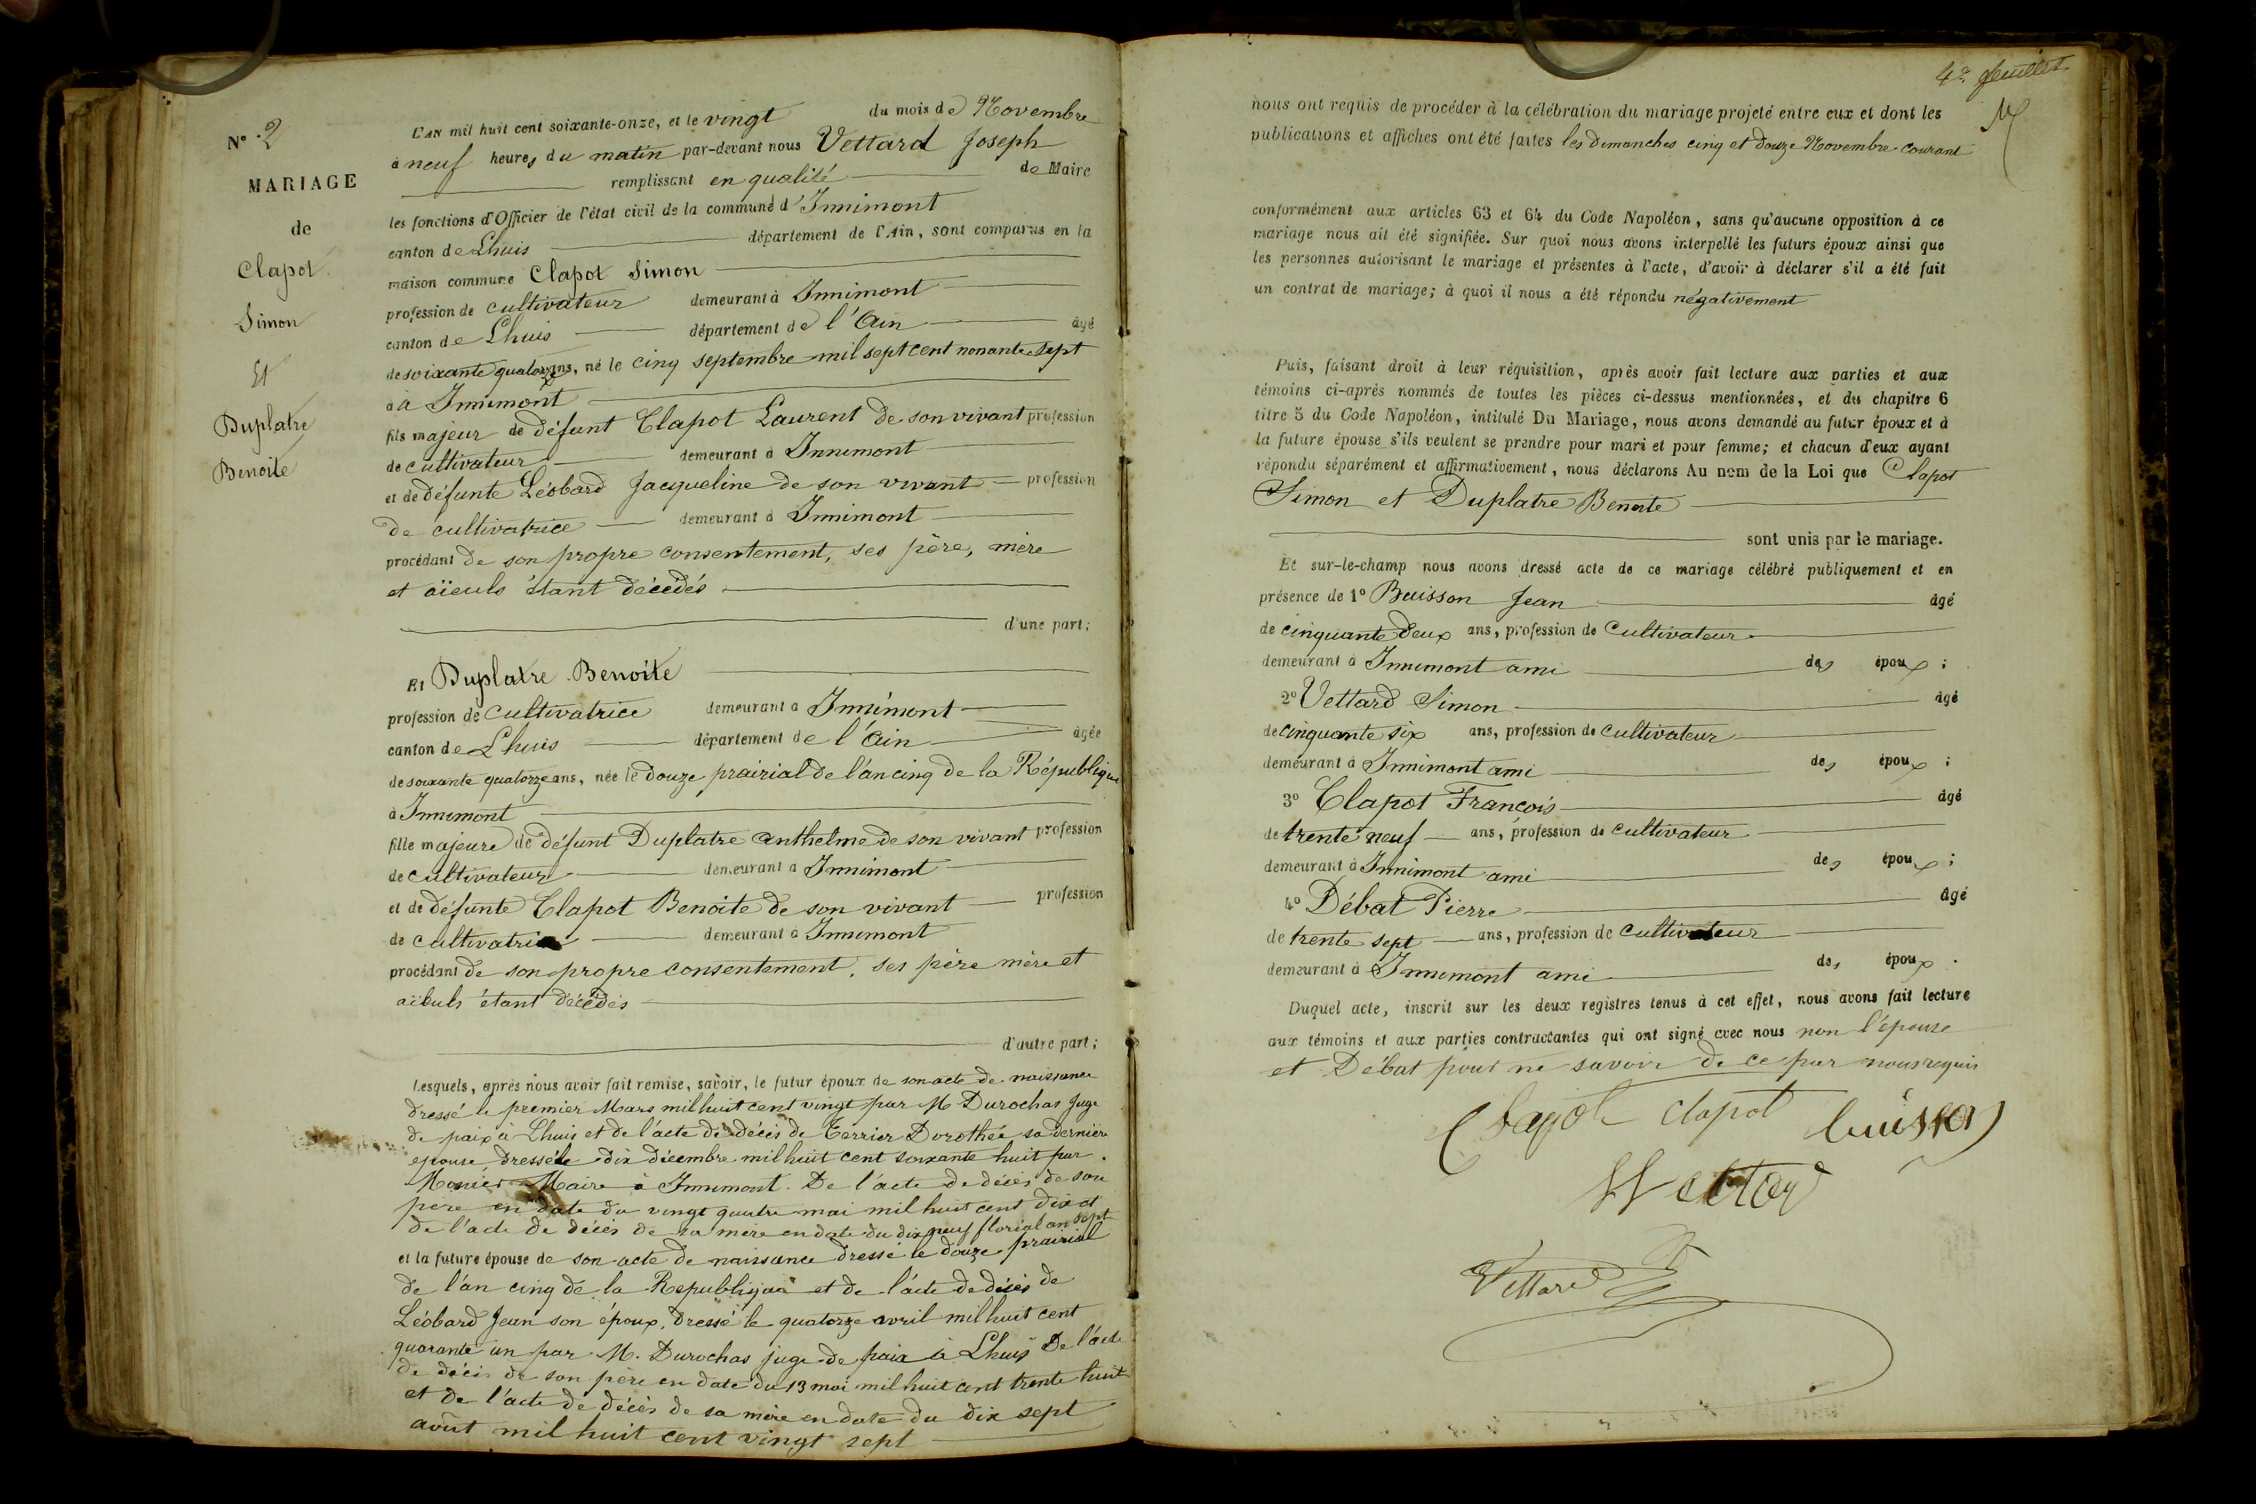 N° 2
MARIAGE
de
Clapot
Simon
Et
Duplatre
Benoite
L'AN mil huit cent soixante-onze, et le vingt du mois de Novembre
à neuf heures du matin par-devant nous Vettard Joseph
remplissant en qualité de Maire
les fonctions d'Officier de l'état civil de la commune d'Innimont
canton de Lhuis département de l'Ain, sont comparus en la
maison commune Clapot Simon
profession de cultivateur demeurant à Innimont
canton de Lhuis département de l'Ain âgé
de soixante quatorze ans, né le cinq septembre mil sept cent nonante sept
à Innimont
fils majeur de défunt Clapot Laurent de son vivant profession
de cultivateur demeurant à Innimont
et de défunte Léobard Jacqueline de son vivant profession
de cultivatrice demeurant à Innimont
procédant de son propre consentement, ses père, mère
et aïeuls étant décédés
d'une part;
Et Duplatre Benoite
profession de cultivatrice demeurant à Innimont
canton de Lhuis département de l'Ain âgée
de soixante quatorze ans, née le douze prairial de l'an cinq de la République
à Innimont
fille majeure de défunt Duplatre Anthelme de son vivant profession
de cultivateur demeurant à Innimont
et de défunte Clapot Benoite de son vivant profession
de cultivatrice demeurant à Innimont
procédant de son propre consentement, ses père mère et
aïeuls étant décédés
d'autre part;
Lesquels, après nous avoir fait remise, savoir, le futur époux de son acte de naissance
dressé le premier Mars mil huit cent vingt par M Durochas Juge
de paix à Lhuis et de l'acte de décès de Terrier Dorothée sa dernière
epouse dressé le dix décembre mil huit cent soixante huit par
Maire à Innimont. De l'acte de décès de son
père en date du vingt quatre mai mil huit cent dix et
de l'acte de décès de sa mère en date du dix neuf floréal an sept
et la future épouse de son acte de naissance dressé le douze prairial
de l'an cinq de la Republique et de l'acte de décès de
Léobard Jean son époux, dressé le quatorze avril mil huit cent
quarante un par M. Durochas juge de paix à Lhuis De l'acte
de décès de son père en date du 13 mai mil huit cent trente huit
et de l'acte de décès de sa mère en date du dix sept
août mil huit cent vingt sept
4e feuillet
nous ont requis de procéder à la célébration du mariage projeté entre eux et dont les
publications et affiches ont été faites les dimanches cinq et douze Novembre courant
conformément aux articles 63 et 64 du Code Napoléon, sans qu'aucune opposition à ce
mariage nous ait été signifiée. Sur quoi nous avons interpellé les futurs époux ainsi que
les personnes autorisant le mariage et présentes à l'acte, d'avoir à déclarer s'il a été fait
un contrat de mariage; à quoi il nous a été répondu négativement
Puis, faisant droit à leur réquisition, après avoir fait lecture aux parties et aux
témoins ci-après nommés de toutes les pièces ci-dessus mentionnées, et du chapitre 6
titre 5 du Code Napoléon, intitulé Du Mariage, nous avons demandé au futur époux et à
la future épouse s'ils veulent se prendre pour mari et pour femme; et chacun d'eux ayant
répondu séparément et affirmativement, nous déclarons Au nom de la Loi que Clapot
Simon et Duplatre Benoite
sont unis par le mariage.
Et sur-le-champ nous avons dressé acte de ce mariage célébré publiquement et en
présence de 1° Buisson Jean âgé
de cinquante deux ans, profession de cultivateur
demeurant à Innimont ami des époux;
2° Vettard Simon âgé
de cinquante six ans, profession de cultivateur
demeurant à Innimont ami des époux;
3° Clapot François âgé
de trente neuf ans, profession de cultivateur
demeurant à Innimont ami des époux;
4° Débat Pierre âgé
de trente sept ans, profession de cultivateur
demeurant à Innimont ami des époux.
Duquel acte, inscrit sur les deux registres tenus à cet effet, nous avons fait lecture
aux témoins et aux parties contractantes qui ont signé avec nous non l'épouse
et Débat pour ne savoir de ce par nous requis
Clapot Clapot buisson
Vettard